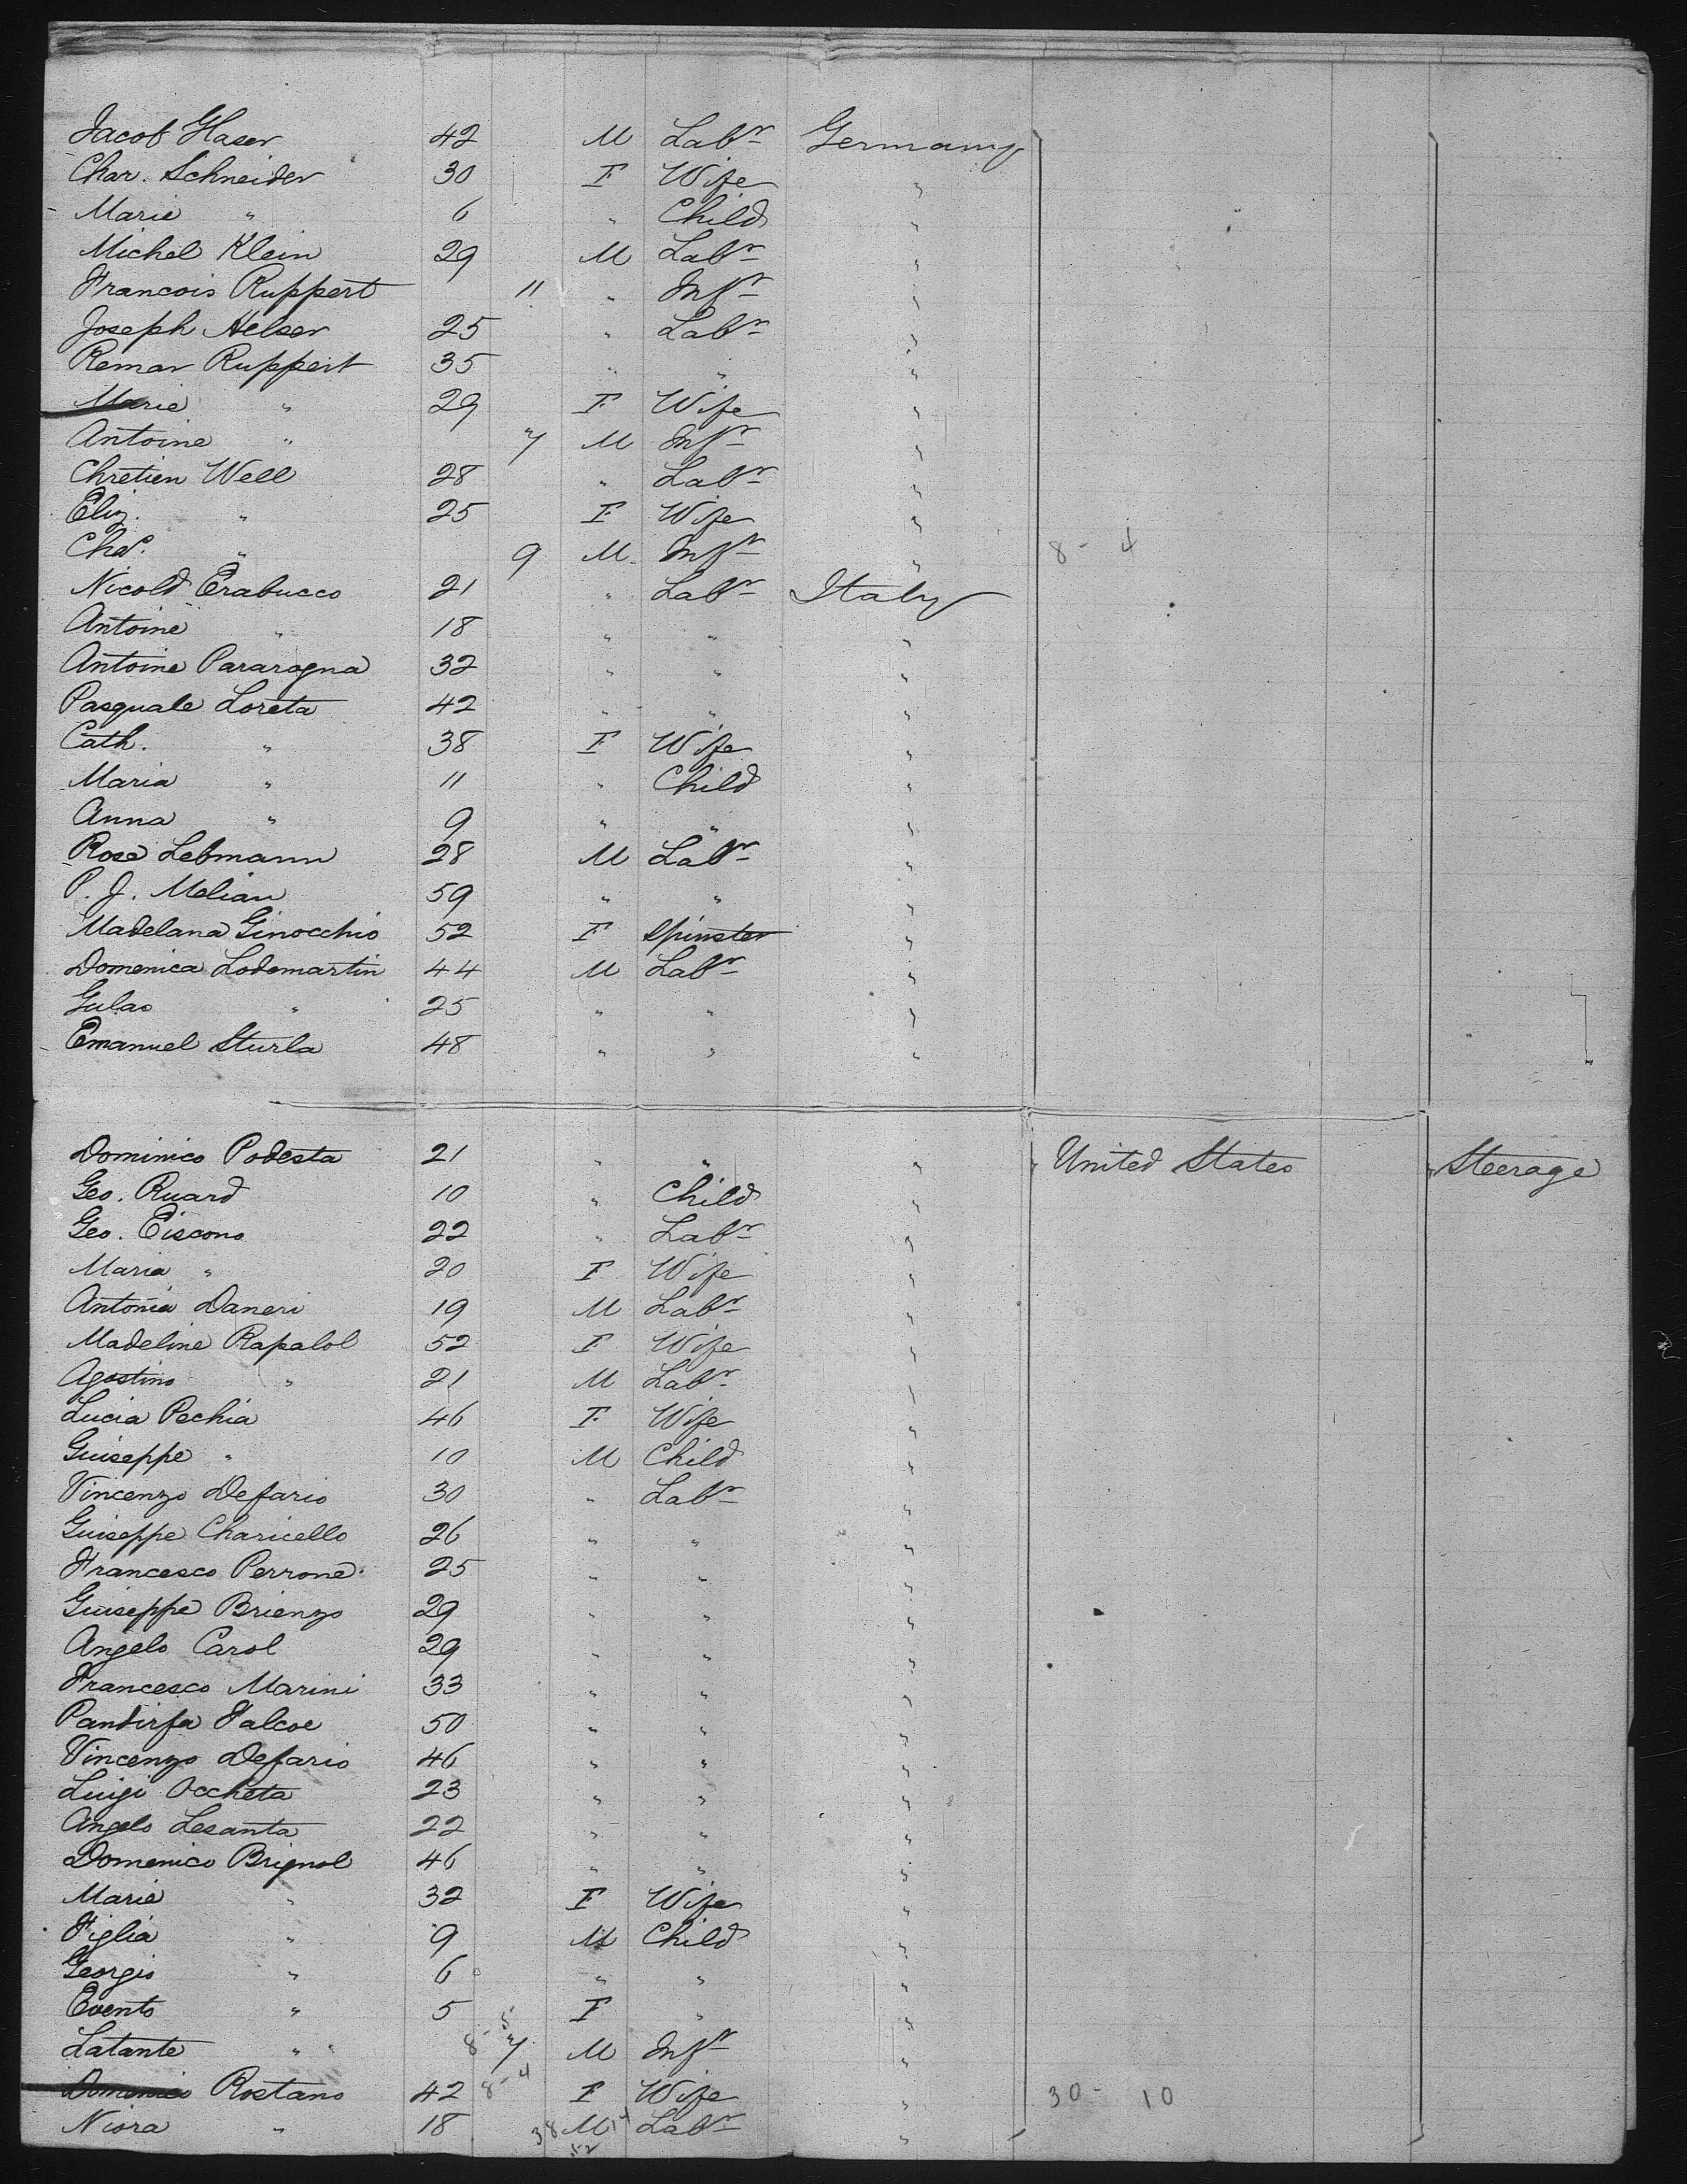 Jacob Glaser 42 M Labr Germany
Char. Schneider 30 F Wife "
Marie " 6 " Child "
Michel Klein 29 M Labr "
Francois Ruppert 11 " Inft "
Joseph Helser 25 " Labr "
Remar Ruppert 35 " " "
Marie " 29 F Wife "
Antoine " 7 M Inft "
Chretien Well 28 " Labr "
Eliz. " 25 F Wife "
Chas. " 9 M Inft " 8 - 4
Nicold Erabucco 21 " Labr Italy
Antoine " 18 " " "
Antoine Pararagna 32 " " "
Pasquale Loreta 42 " " "
Cath. " 38 F Wife "
Maria " 11 " Child "
Anna " 9 " " "
Rose Lebmann 28 M Labr "
P. J. Melian 59 " " "
Madelana Ginocchio 52 F Spinster "
Domenica Lodomartin 44 M Labr "
Gulao " 25 " " "
Emanuel Sturla 48 " " "
Dominico Podesta 21 " " " United States Steerage
Geo. Ruard 10 " Child "
Geo. Eiscono 22 " Labr "
Maria " 20 F Wife "
Antonia Daneri 19 M Labr "
Madeline Rapalol 52 F Wife "
Agostino " 21 M Labr "
Lucia Pechia 46 F Wife "
Guiseppe " 10 M Child "
Vincenzo Defario 30 " Labr "
Guiseppe Charicello 26 " " "
Francesco Perrone 25 " " "
Guiseppe Brienzo 29 " " "
Angelo Carol 29 " " "
Francesco Marini 33 " " "
Pandirfa Falcoe 50 " " "
Vincenzo Defario 46 " " "
Luigi Occheta 23 " " "
Angelo Lesanta 22 " " "
Domenico Brignol 46 " " "
Marie " 32 F Wife "
Figlia " 9 M Child "
Georgio " 6 " " "
Evento " 5 F " "
Latante " 8 - 5 7 M Inft "
Domenico Rostano 42 8 - 4 F Wife " 30 - 10
Niora " 18 38 M 14 Labr "
52